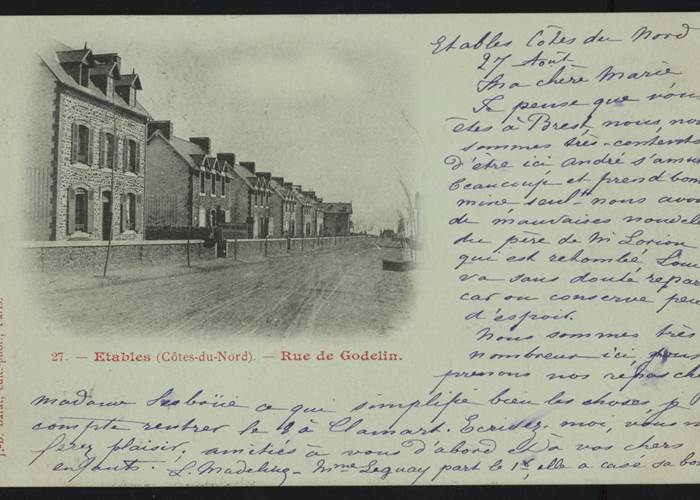 Etables Côtes du Nord
27 Août
Ma chère Marie
Je pense que vous
êtes à Brest, nous, nou
sommes très-contents
d'être ici André s'amus
beaucoup et prend bon
mine seul nous avon
de mauvaises nouvelle
du père de Mr Lorion
qui est retombé Lou
va sans doute repar
car on conserve peu
d'espoir.
Nous sommes très
nombreux ici, nous
prenons nos repas che
madame ce qui simplifie bien les choses, p
compte rentrer le à Clamart. Ecrivez-moi, vous m
ferez plaisir, amitiés à vous d'abord et à vos chers
enfants. L. Madeline - Mme Leguay part le 1er, elle a casé sa
27. — Etables (Côtes-du-Nord). — Rue de Godelin.
Paris.